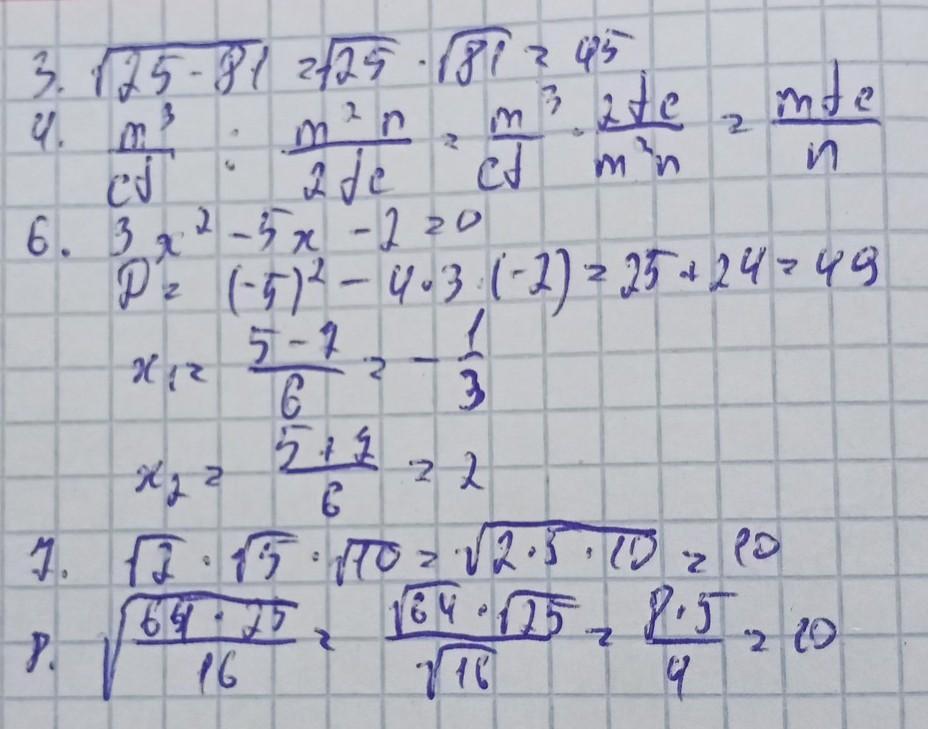 3. √(25 · 81) = √25 · √81 = 45
4. m³/cd : m²n/2dc = m³/cd · 2dc/m²n = mdc/n
6. 3x² - 5x - 2 = 0
D = (-5)² - 4·3·(-2) = 25 + 24 = 49
x₁ = (5 - 7)/6 = -1/3
x₂ = (5 + 7)/6 = 2
7. √2 · √5 · √10 = √(2·5·10) = 10
8. √((64 · 25)/16) = (√64 · √25)/√16 = (8·5)/4 = 10